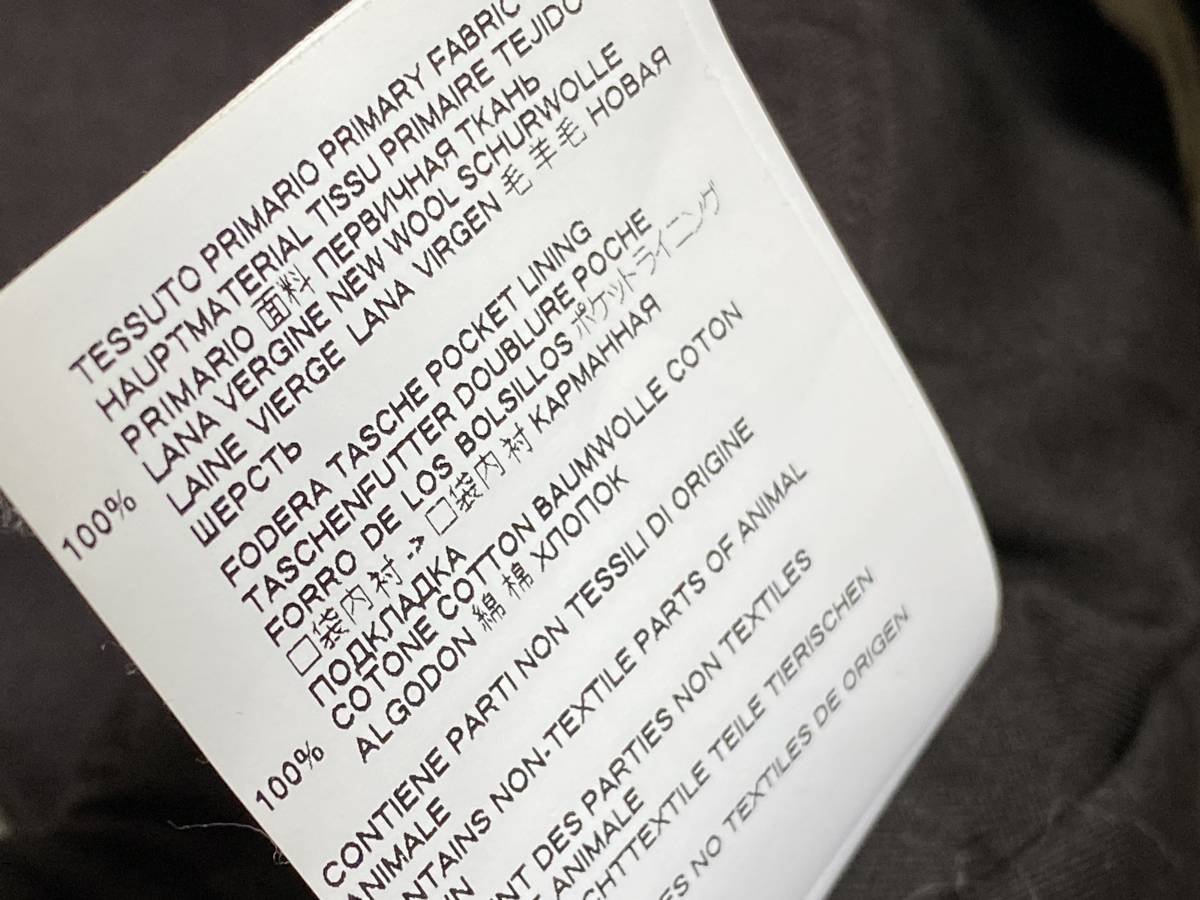 TESSUTO PRIMARIO PRIMARY FABRIC
HAUPTMATERIAL TISSU PRIMAIRE TEJIDO
PRIMARIO 面料 ПЕРВИЧНАЯ ТКАНЬ
100% LANA VERGINE NEW WOOL SCHURWOLLE
LAINE VIERGE LANA VIRGEN 毛 羊毛 НОВАЯ
ШЕРСТЬ
FODERA TASCHE POCKET LINING
TASCHENFUTTER DOUBLURE POCHE
FORRO DE LOS BOLSILLOS ポケットライニング
□袋内衬 -> □袋内衬 КАРМАННАЯ
ПОДКЛАДКА
100% COTONE COTTON BAUMWOLLE COTON
ALGODON 綿 棉 ХЛОПОК
CONTIENE PARTI NON TESSILI DI ORIGINE
ANIMALE
NTAINS NON-TEXTILE PARTS OF ANIMAL
IN
NT DES PARTIES NON TEXTILES
E ANIMALE
CHTTEXTILE TEILE TIERISCHEN
ES NO TEXTILES DE ORIGEN